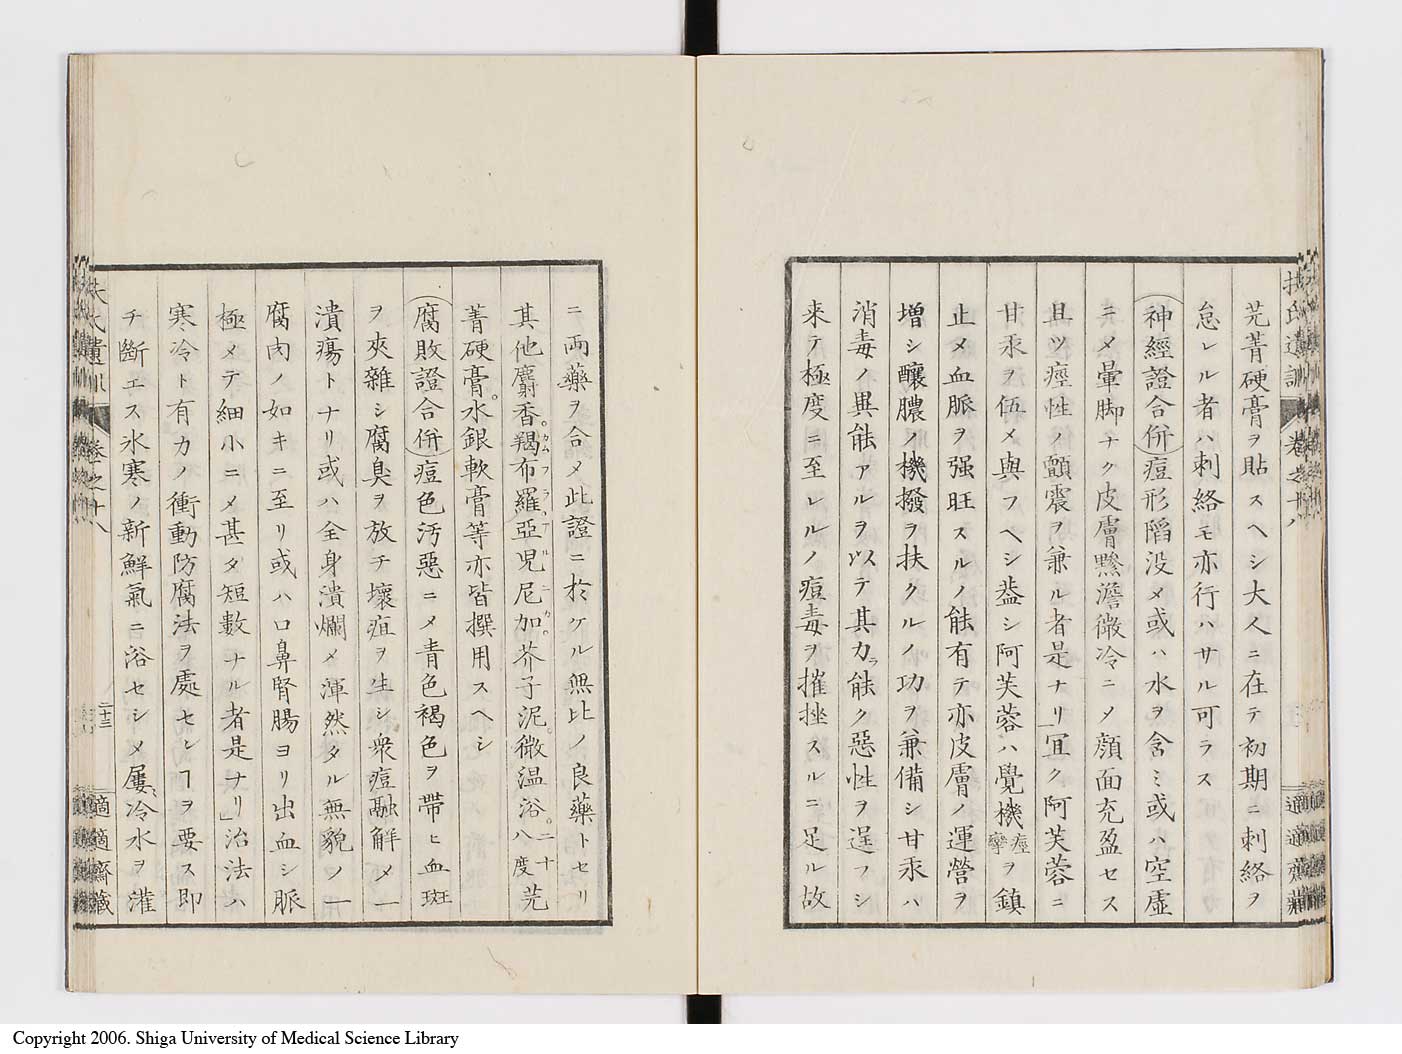 芫菁硬膏ヲ貼スヘシ大人ニ在テ初期ニ刺絡ヲ
怠レル者ハ刺絡モ亦行ハサル可ラス
神經證合併痘形陷没〆或ハ水ヲ含ミ或ハ空虚
ニ〆暈脚ナク皮膚黲澹微冷ニ〆顔面充盈セス
且ツ痙性ノ顫震ヲ兼ル者是ナリ」冝ク阿芙蓉ニ
甘汞ヲ伍〆與フヘシ葢シ阿芙蓉ハ覺機痙攣ヲ鎮
止〆血脈ヲ强旺スルノ能有テ亦皮膚ノ運營ヲ
増シ釀膿ノ機撥ヲ扶クルノ功ヲ兼備シ甘汞ハ
消毒ノ異能アルヲ以テ其力ラ能ク惡性ヲ逞フシ
来テ極度ニ至レルノ痘毒ヲ摧挫スルニ足ル故
ニ兩藥ヲ合〆此證ニ於ケル無比ノ良藥トセリ
其他麝香。羯布羅。亞兒尼加。芥子泥。微温浴。二十八度芫
菁硬膏。水銀軟膏等亦皆撰用スヘシ
腐敗證合併痘色汚惡ニ〆青色褐色ヲ帶ヒ血斑
ヲ夾雜シ腐臭ヲ放チ壞疽ヲ生シ衆痘融解〆一
潰瘍トナリ或ハ全身潰爛〆渾然タル無貌ノ一
腐肉ノ如キニ至リ或ハ口鼻腎腸ヨリ出血シ脈
極メテ細小ニ〆甚タ短數ナル者是ナリ」治法ハ
寒冷ト有力ノ衝動防腐法ヲ處センヿヲ要ス即
チ斷エス氷寒ノ新鮮氣ニ浴セシメ屢〻冷水ヲ灌
卷之十八
二十三
適適齋藏
Copyright 2006. Shiga University of Medical Science Library